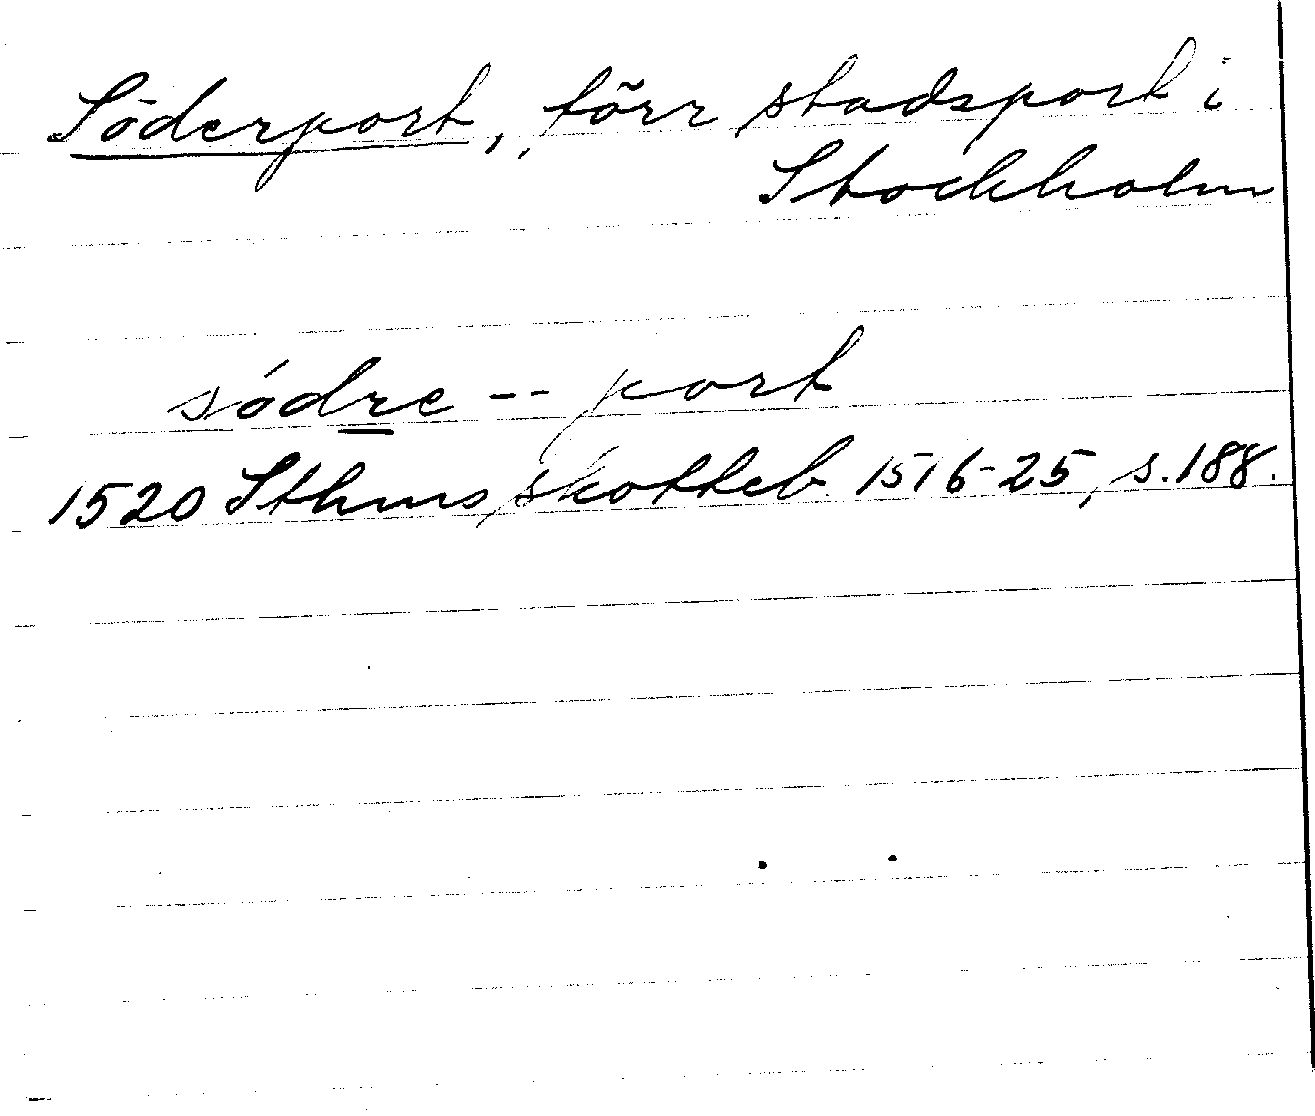 Söderport, förr stadsport i
Stockholm
södre -- port
1520 Sthms skotteb. 1516-25, s. 188.